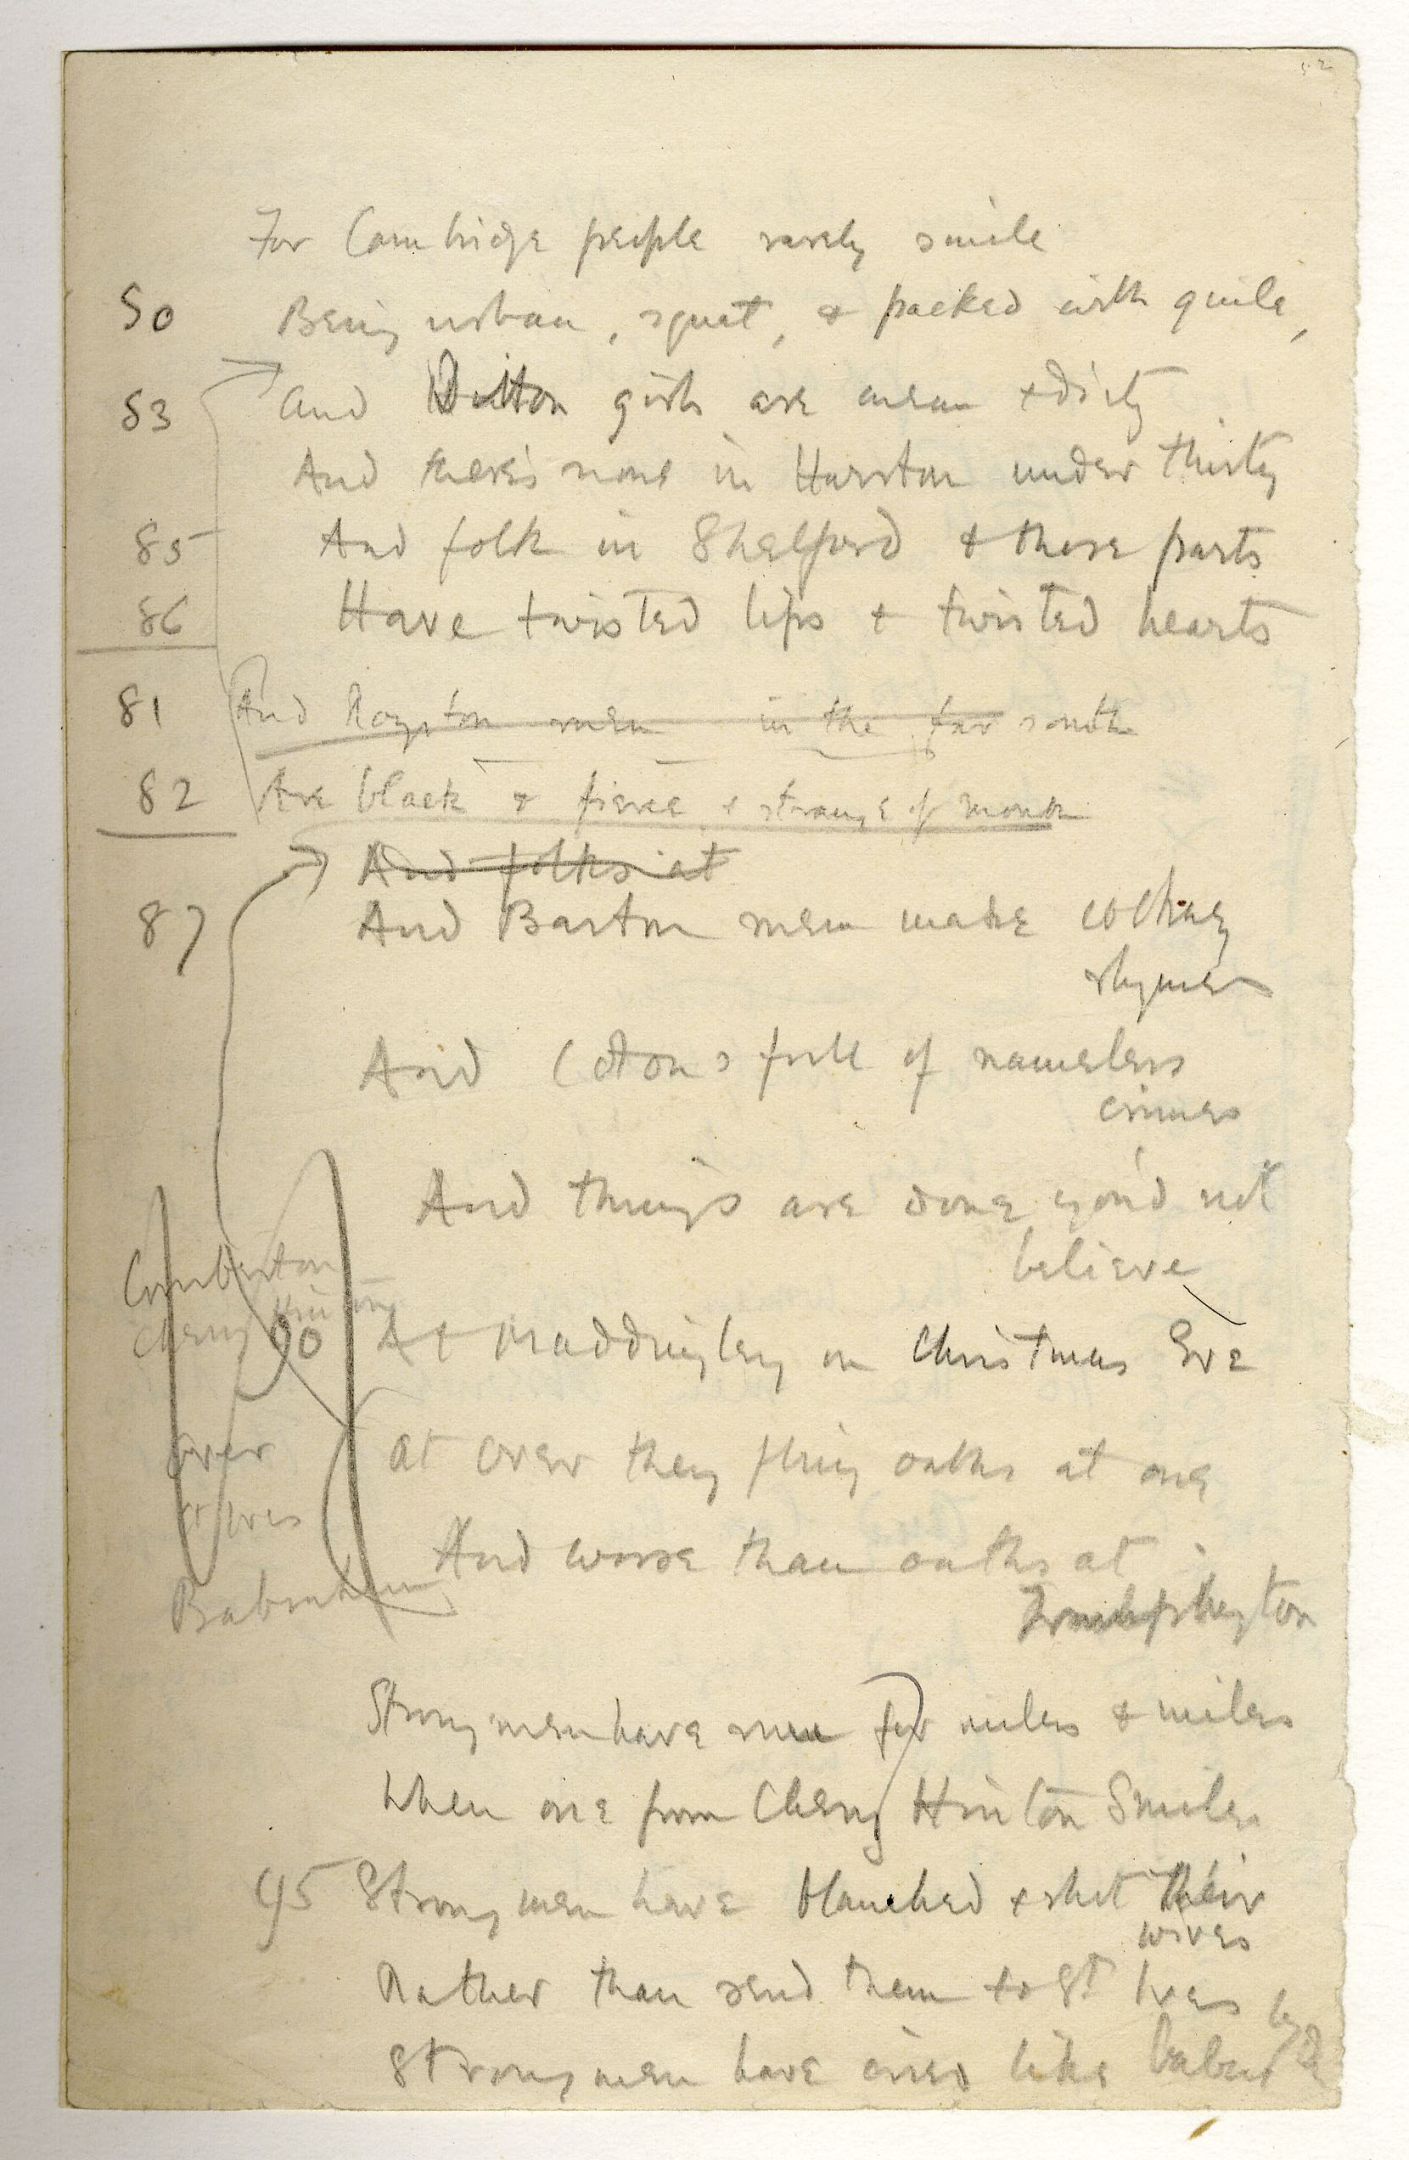 52
For Cambridge people rarely smile
80 Being urban, squat, & packed with guile,
83 And Ditton girls are mean & dirty
And there's none in Harston under thirty
85 And folk in Shelford & those parts
86 Have twisted lips & twisted hearts
81 And Royston men in the far south
82 Are black & fierce & strange of mouth
And folks at
87 And Barton men make cockney
rhymes
And Coton's full of nameless
crimes
And things are done you'd not
believe
Comberton
Cherry Hinton
90 At Maddingley on Christmas Eve
Over
At Over they fling oaths at one
St Ives
And worse than oaths at
Trumpington
Babraham
Strong men have run for miles & miles
When one from Cherry Hinton Smiles
95 Strong men have blanched & shot their
wives
Rather than send them to St Ives
Strong men have cried like babes